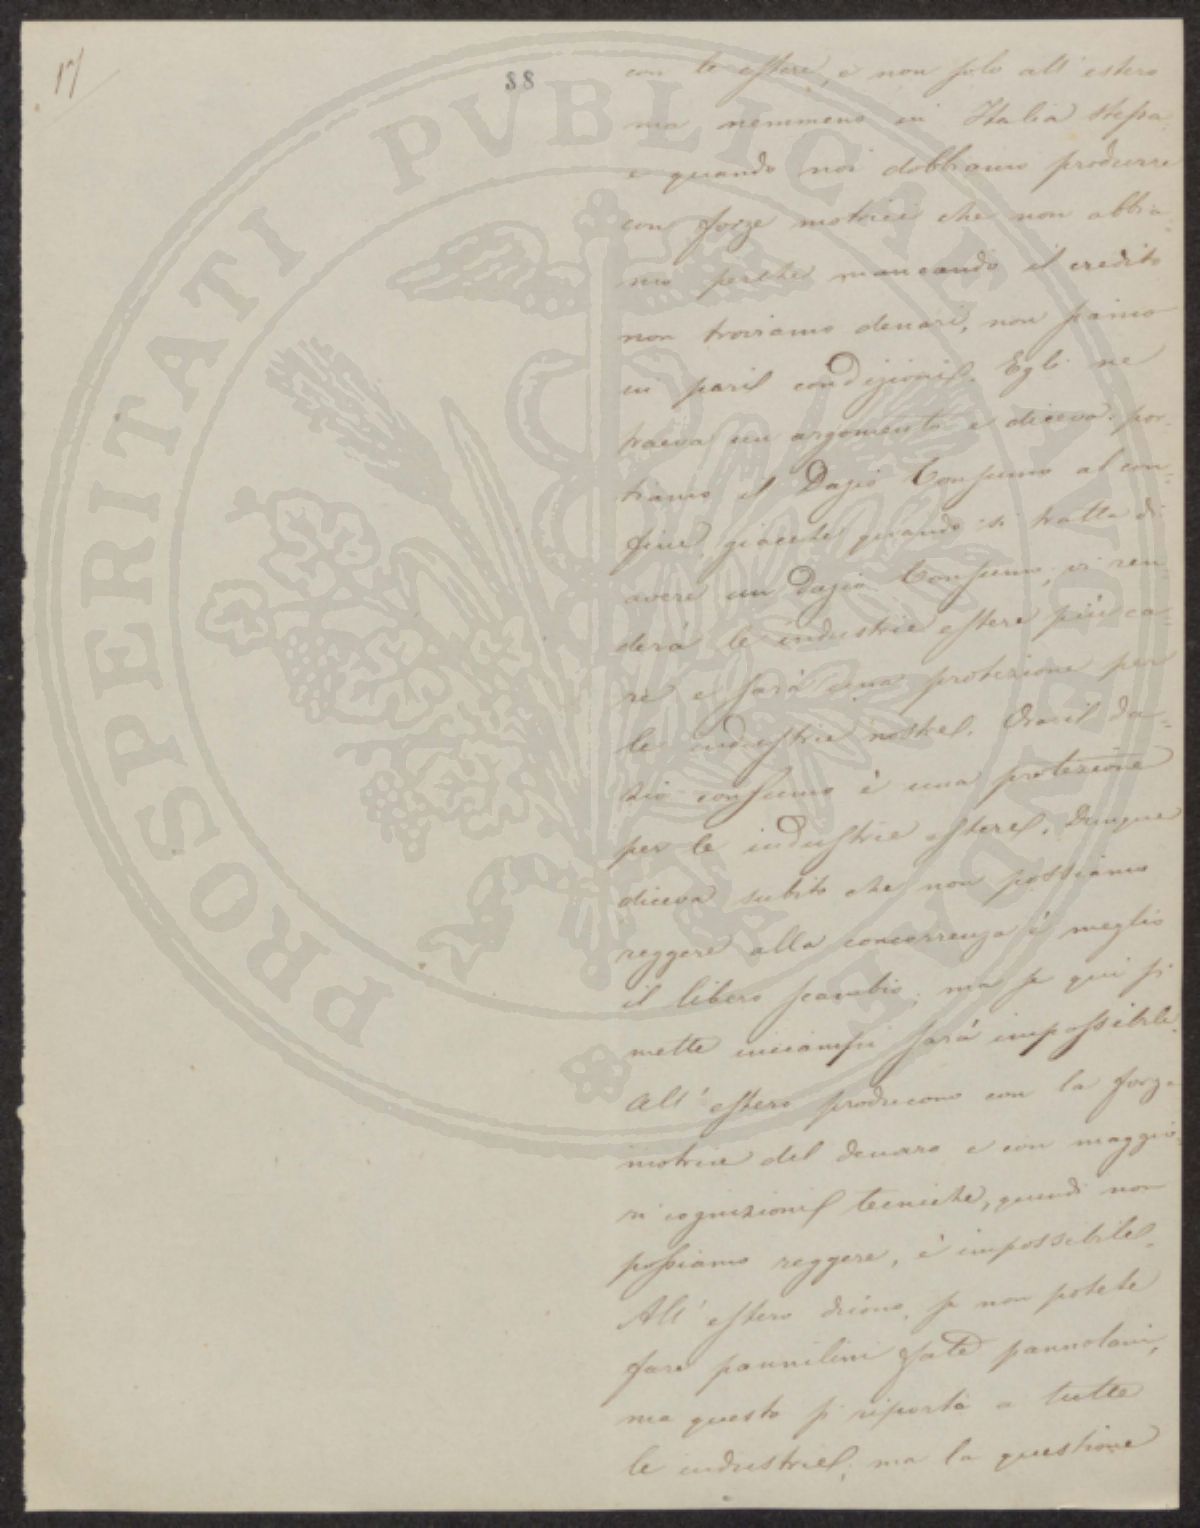 17
88
con le estere, e non solo all'estero
ma nemmeno in Italia stessa
e quando noi dobbiamo produrre
con forze motrici che non abbia-
mo perchè mancando il credito
non troviamo denari, non siamo
in pari condizioni. Egli ne
traeva un argomento e diceva: por-
tiamo il Dazio Consumo al con-
fine, giacchè quando si tratta di
avere un Dazio Consumo, vi ren-
derà le industrie estere più ca-
re e sarà una protezione per
le industrie nostre. Ora il da-
zio consumo è una protezione
per le industrie estere. Dunque
diceva subito che non possiamo
reggere alla concorrenza è meglio
il libero scambio; ma se qui si
mette inciampi sarà impossibile.
All'estero producono con la forza
motrice del denaro e con maggio-
ri cognizioni tecniche, quindi non
possiamo reggere, è impossibile.
All'estero dicono, se non potete
fare pannilini fate pannolani,
ma questo si riporta a tutte
le industrie; ma la questione
PROSPERITATI PVBLICAE AVGENDAE